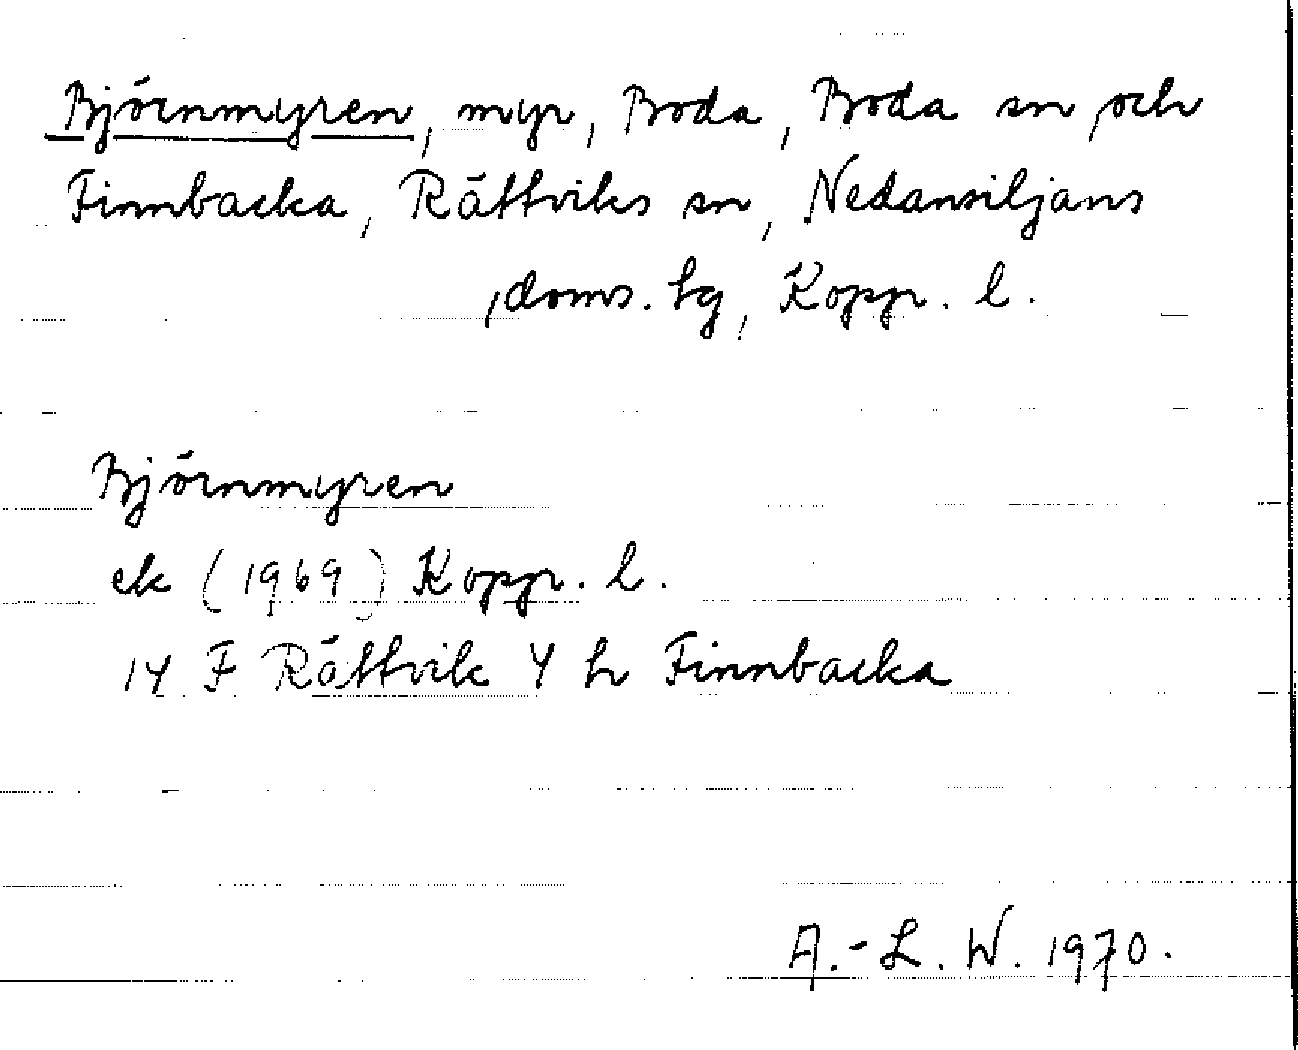 Björnmyren, myr, Boda, Boda sn och
Finnbacka, Rättviks sn, Nedansiljans
doms. hg, Kopp. l.
Björnmyren
ek (1969) Kopp. l.
14 F Rättvik 4 h Finnbacka
A.-L. W. 1970.